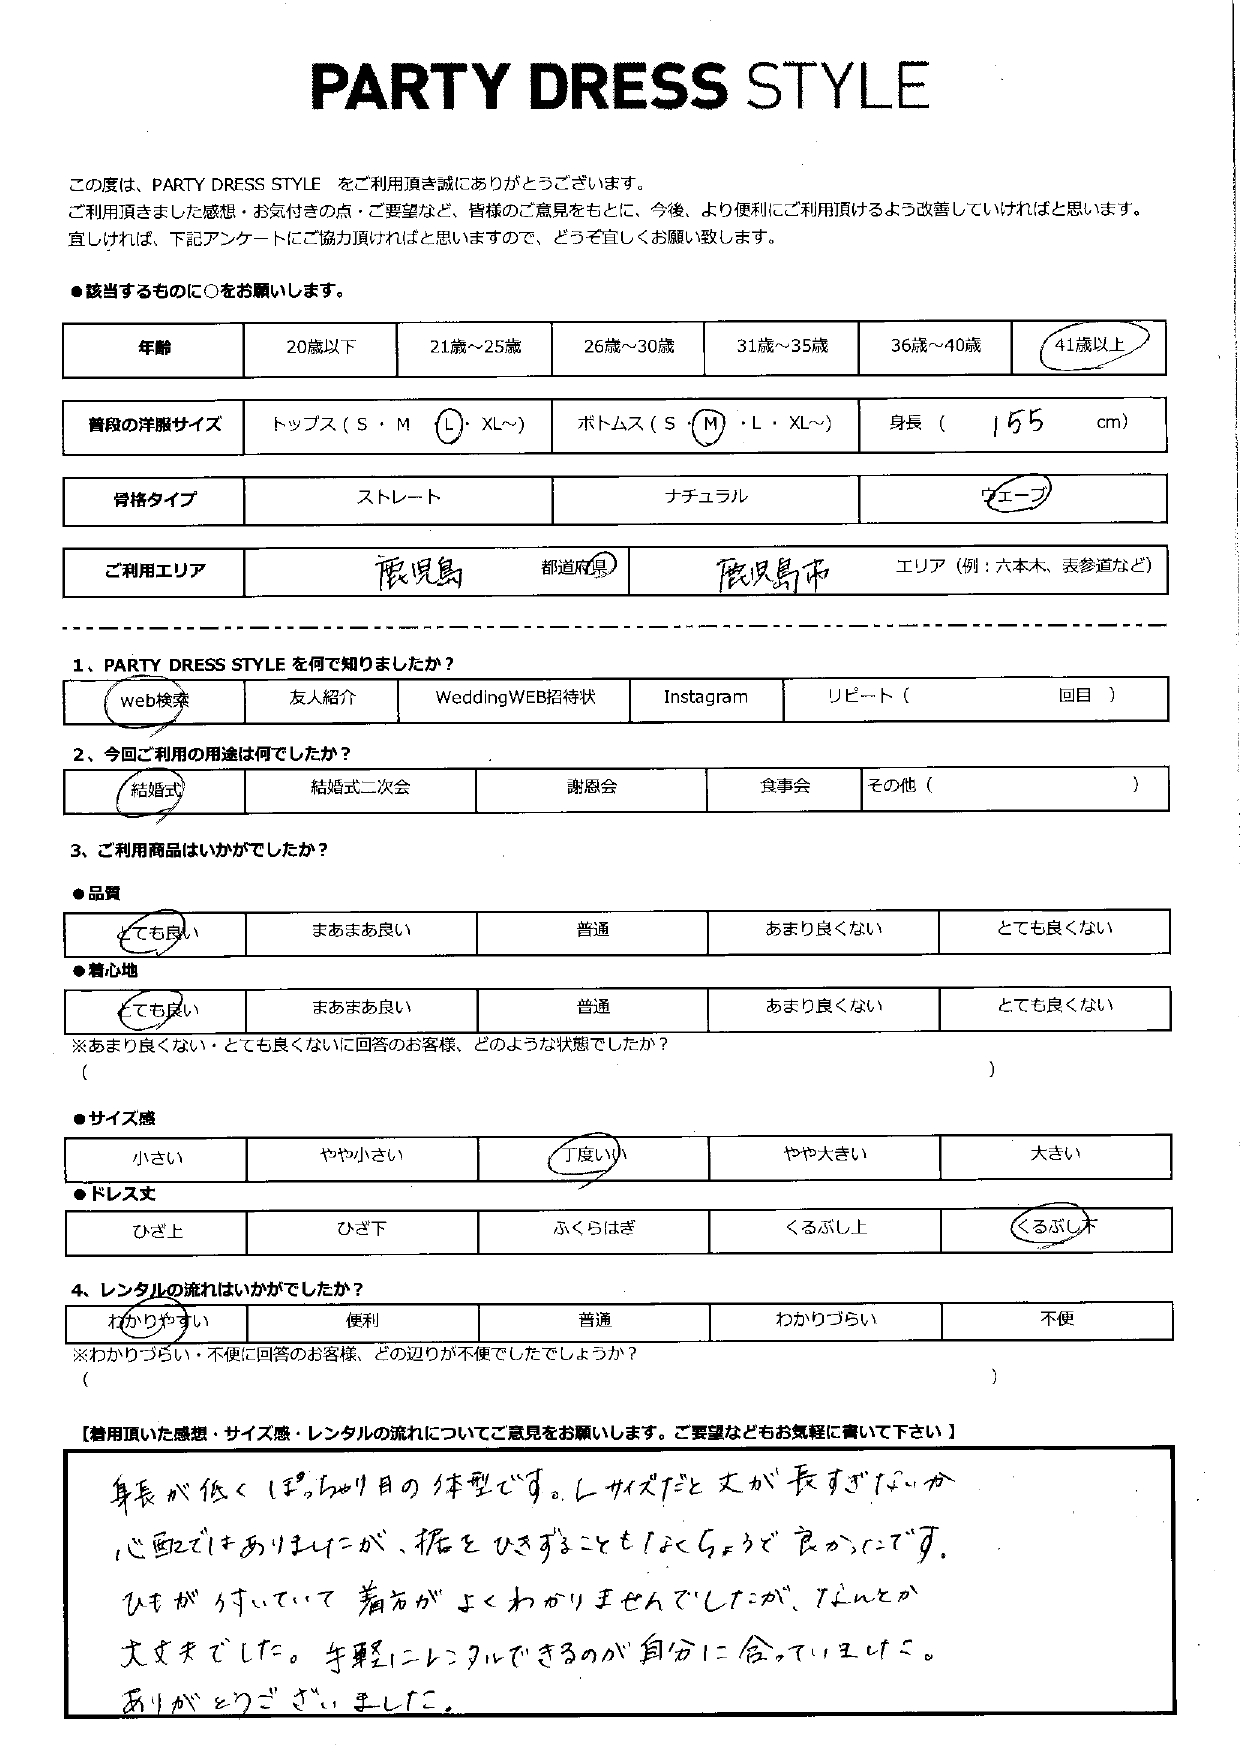 PARTY DRESS STYLE
この度は、PARTY DRESS STYLE　をご利用頂き誠にありがとうございます。
ご利用頂きました感想・お気付きの点・ご要望など、皆様のご意見をもとに、今後、より便利にご利用頂けるよう改善していければと思います。
宜しければ、下記アンケートにご協力頂ければと思いますので、どうぞ宜しくお願い致します。
●該当するものに○をお願いします。
年齢 20歳以下 21歳～25歳 26歳～30歳 31歳～35歳 36歳～40歳 41歳以上
普段の洋服サイズ トップス ( S ・ M L ・ XL～) ボトムス ( S ・ M ・ L ・ XL～) 身長 ( 155 cm)
骨格タイプ ストレート ナチュラル ウェーブ
ご利用エリア 鹿児島 都道府県 鹿児島市 エリア（例：六本木、表参道など）
1、PARTY DRESS STYLE を何で知りましたか？
web検索 友人紹介 WeddingWEB招待状 Instagram リピート（ 回目 ）
2、今回ご利用の用途は何でしたか？
結婚式 結婚式二次会 謝恩会 食事会 その他（ ）
3、ご利用商品はいかがでしたか？
●品質
とても良い まあまあ良い 普通 あまり良くない とても良くない
●着心地
とても良い まあまあ良い 普通 あまり良くない とても良くない
※あまり良くない・とても良くないに回答のお客様、どのような状態でしたか？
（ ）
●サイズ感
小さい やや小さい 丁度いい やや大きい 大きい
●ドレス丈
ひざ上 ひざ下 ふくらはぎ くるぶし上 くるぶし下
4、レンタルの流れはいかがでしたか？
わかりやすい 便利 普通 わかりづらい 不便
※わかりづらい・不便に回答のお客様、どの辺りが不便でしたでしょうか？
（ ）
【着用頂いた感想・サイズ感・レンタルの流れについてご意見をお願いします。ご要望などもお気軽に書いて下さい 】
身長が低くぽっちゃり目の体型です。Lサイズだと丈が長すぎないか
心配ではありましたが、裾をひきずることもなくちょうど良かったです。
ひもが付いていて着方がよくわかりませんでしたが、なんとか
大丈夫でした。手軽にレンタルできるのが自分に合っていました。
ありがとうございました。